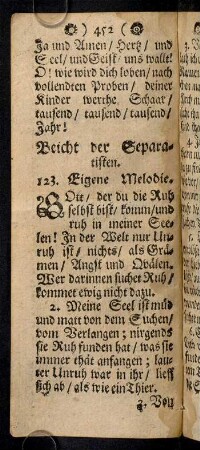 ( 452 )
Ja und Amen/ Hertz/ und
Seel/ und Geist/ uns wallt!
O! wie wird dich loben/ nach
vollendten Proben/ deiner
Kinder werthe Schaar/
tausend/ tausend/ tausend/
Jahr!
Beicht der Separa-
tisten.
123. Eigene Melodie.
GOtt/ der du die Ruh
selbst bist/ komm/ und
ruh in meiner See-
len! In der Welt nur Un-
ruh ist/ nichts/ als Grä-
men/ Angst und Qvälen.
Wer darinnen suchet Ruh/
kommet ewig nicht dazu.
2. Meine Seel ist müd
und matt von dem Suchen/
vom Verlangen; nirgends
sie Ruh funden hat/ was sie
immer thät anfangen; lau-
ter Unruh war in ihr/ lieff
sich ab/ als wie ein Thier.
3. Von